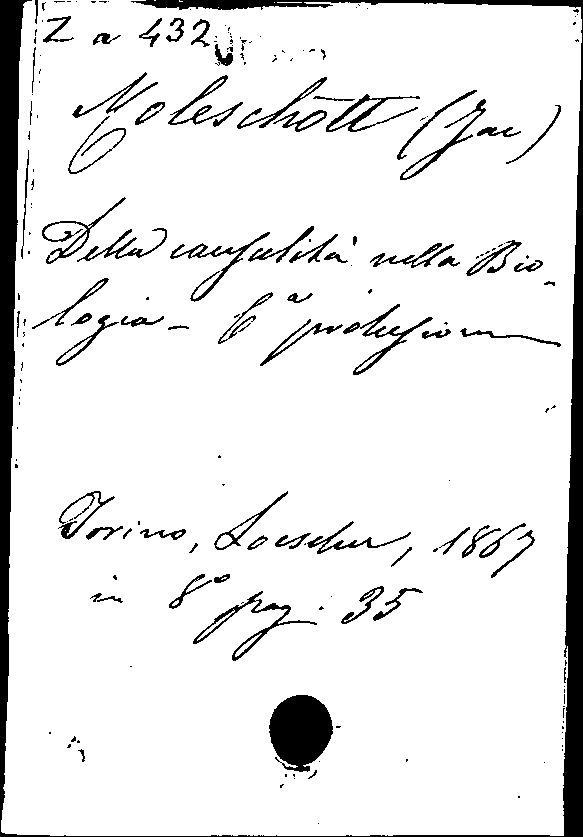 Z a 432
Moleschott (Jac)
Della causalità nella Bio-
logia - 6ª prolusione
Torino, Loescher, 1867
in 8º pag. 35